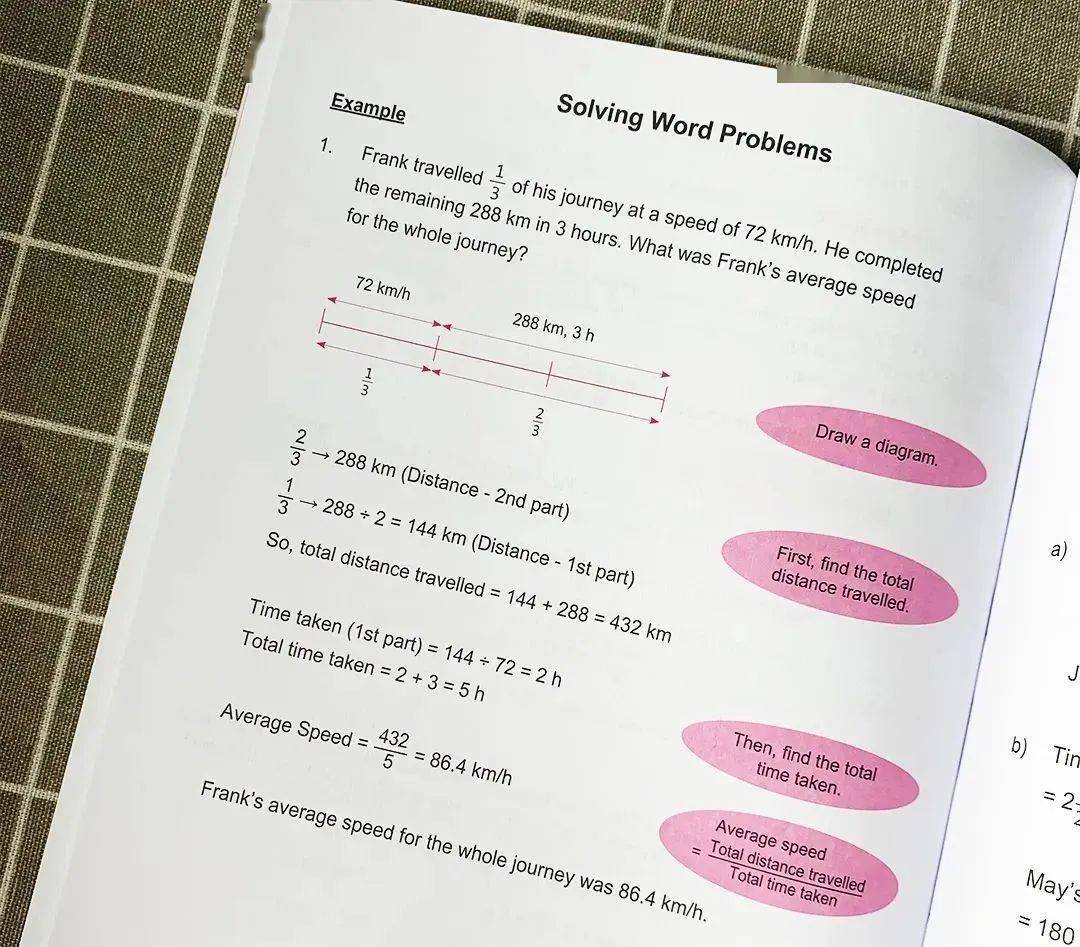 Solving Word Problems
Example
1. Frank travelled 1/3 of his journey at a speed of 72 km/h. He completed
the remaining 288 km in 3 hours. What was Frank's average speed
for the whole journey?
72 km/h
288 km, 3 h
1/3
2/3
Draw a diagram.
2/3 → 288 km (Distance - 2nd part)
1/3 → 288 ÷ 2 = 144 km (Distance - 1st part)
So, total distance travelled = 144 + 288 = 432 km
First, find the total
distance travelled.
Time taken (1st part) = 144 ÷ 72 = 2 h
Total time taken = 2 + 3 = 5 h
Then, find the total
time taken.
Average Speed = 432/5 = 86.4 km/h
Average speed
= Total distance travelled / Total time taken
Frank's average speed for the whole journey was 86.4 km/h.
a)
J
b)
= 2
May's
= 180